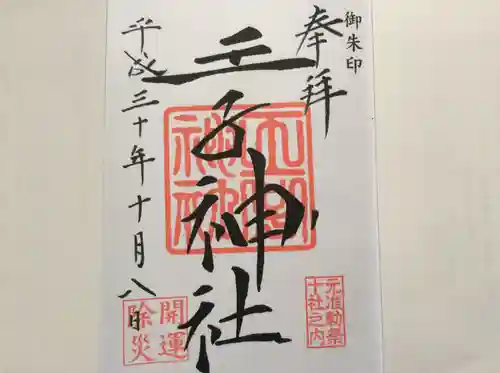 御朱印
奉拝
王子神社
平成三十年十月八日
王子神社
元准勅祭
十社之内
開運
除災